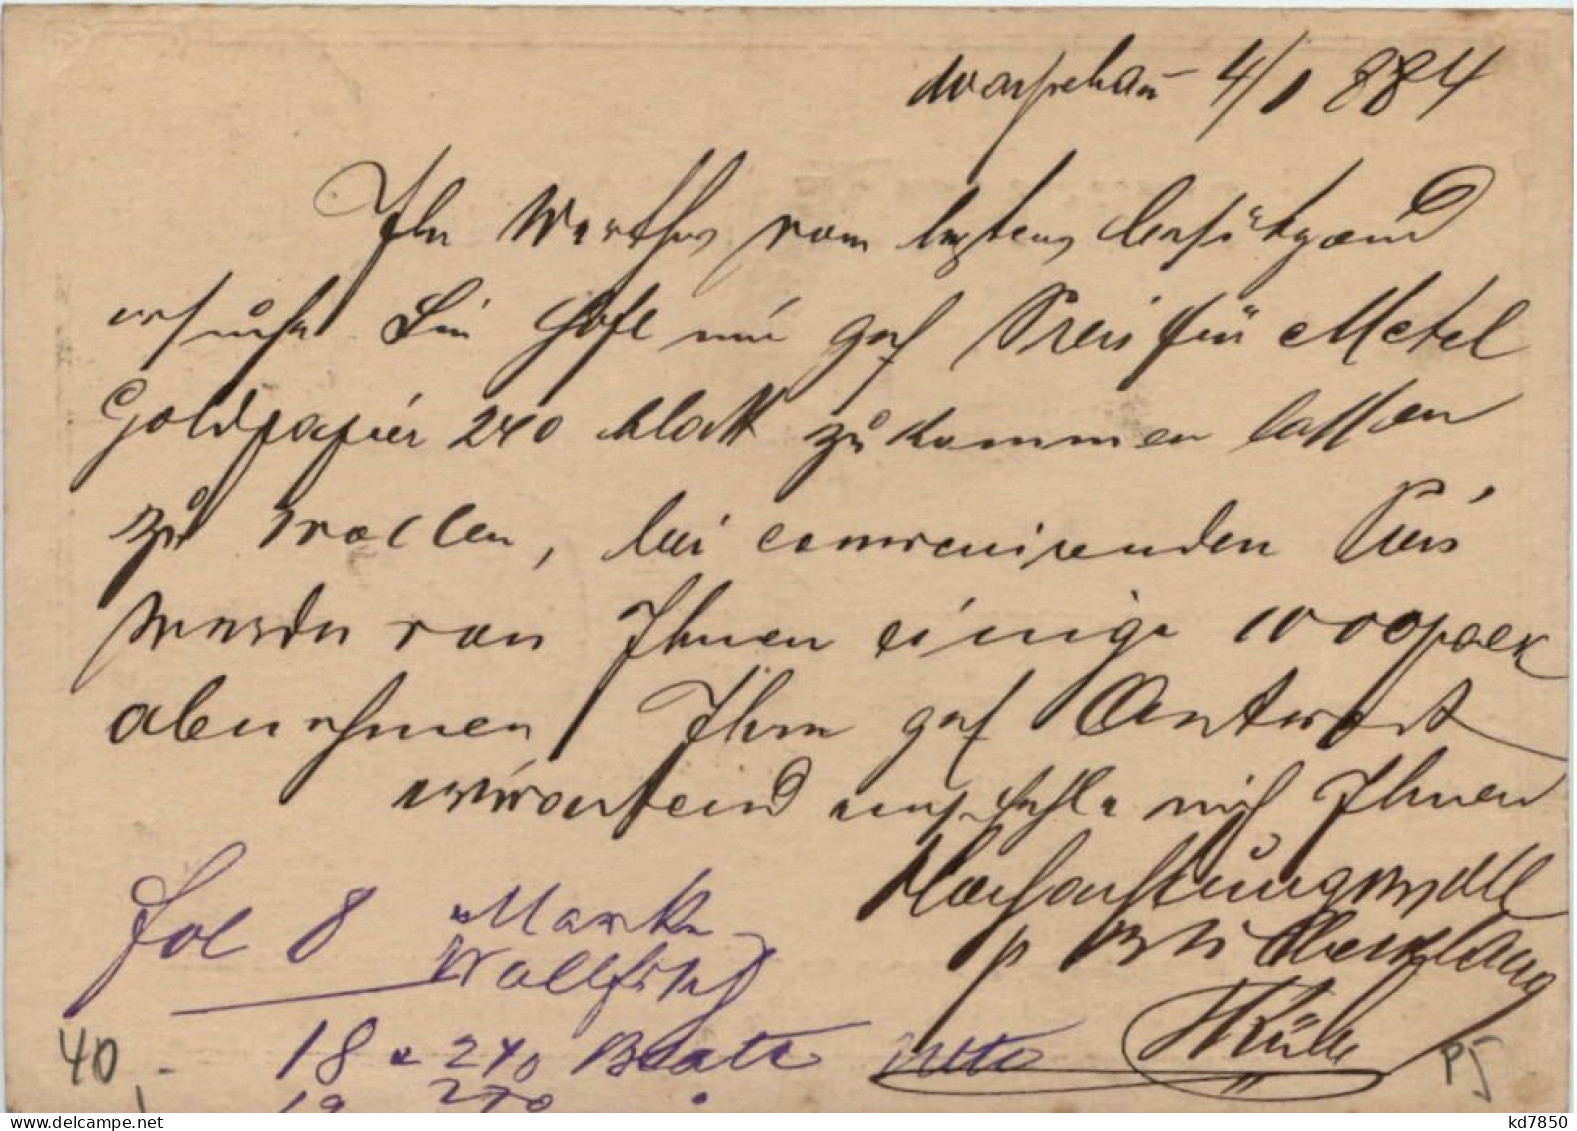 Warschau 4/1 884
Ihr Werthes vom letztens bestätigend
ersuche Sie höfl mir gefl Preis für Metal
Goldpapier 240 blatt zukommen lassen
zu wollen, bei convenirenden Preis
werde von Ihnen einige 1000 pack
abnehmen Ihre gefl Antwort
erwartend empfehle mich Ihnen
Hochachtungsvoll
p
Fol 8 Mark
18 a 240 Blatt netto
19 270
40,-
PJ
kd7850